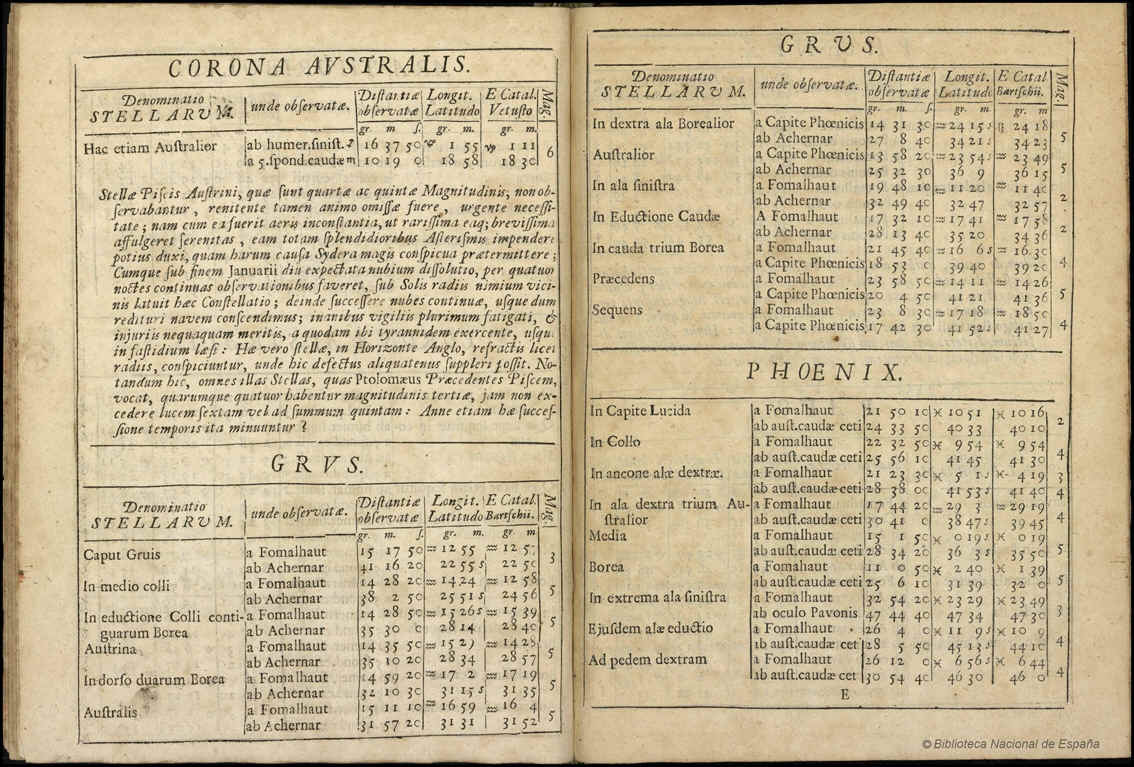 CORONA AVSTRALIS.
Denominatio STELLARVM. unde observatæ. Distantiæ observatæ Longit. Latitudo E Catal. Vetusto Mag.
gr. m. s. gr. m. gr. m.
Hac etiam Australior ab humer.sinist. 16 37 50 1 55 1 11 6
a 5.spond.caudæ 10 19 0 18 58 18 30
Stellæ Piscis Austrini, quæ sunt quartæ ac quintæ Magnitudinis, non ob-
servabantur, renitente tamen animo omissæ fuere, urgente necessi-
tate; nam cum ea fuerit aeris inconstantia, ut rarissima eaq; brevissima
affulgeret serenitas, eam totam splendidioribus Asterismis impendere
potius duxi, quam harum causa Sydera magis conspicua prætermittere;
Cumque sub finem Januarii diu expectata nubium dissolutio, per quatuor
noctes continuas observationibus faveret, sub Solis radiis nimium vici-
nis latuit hæc Constellatio; deinde successere nubes continuæ, usque dum
redituri navem conscendimus; inanibus vigiliis plurimum fatigati, &
injuriis nequaquam meritis, a quodam ibi tyrannidem exercente, usque
in fastidium læsi: Hæ vero stellæ, in Horizonte Anglo, refractis licet
radiis, conspiciuntur, unde hic defectus aliquatenus suppleri possit. No-
tandum hic, omnes illas Stellas, quas Ptolomæus Præcedentes Piscem,
vocat, quarumque quatuor habentur magnitudinis tertiæ, jam non ex-
cedere lucem sextam vel ad summum quintam: Anne etiam hæ succes-
sione temporis ita minuuntur?
GRVS.
Denominatio STELLARVM. unde observatæ. Distantiæ observatæ Longit. Latitudo E Catal. Bartschii. Mag.
gr. m. s. gr. m. gr. m
Caput Gruis a Fomalhaut 15 17 50 ♒ 12 55 ♒ 12 3
ab Achernar 41 16 20 22 55 s 22 50
In medio colli a Fomalhaut 14 28 20 ♒ 14 24 ♒ 12 58 5
ab Achernar 38 2 50 25 51 s 24 56
In eductione Colli conti- a Fomalhaut 14 28 50 ♒ 15 26 s ♒ 15 39 5
guarum Borea ab Achernar 35 30 0 28 14 28 40
Austrina a Fomalhaut 14 35 50 ♒ 15 27 ♒ 14 28 5
ab Achernar 35 10 20 28 34 28 57
In dorso duarum Borea a Fomalhaut 14 59 20 ♒ 17 2 ♒ 17 19 5
ab Achernar 32 10 30 31 15 s 31 35
Australis a Fomalhaut 15 11 10 ♒ 16 59 ♒ 16 4 5
ab Achernar 31 57 20 31 31 31 52
GRVS.
Denominatio STELLARVM. unde observatæ. Distantiæ observatæ Longit. Latitudo E Catal. Bartschii. Mag.
gr. m. s. gr. m. gr. m
In dextra ala Borealior a Capite Phœnicis 14 31 30 ♒ 24 15 s 24 18 5
ab Achernar 27 8 40 34 21 s 34 23
Australior a Capite Phœnicis 13 58 20 ♒ 23 54 s ♒ 23 49 5
ab Achernar 25 32 30 36 9 36 15
In ala sinistra a Fomalhaut 19 48 10 ♒ 11 20 ♒ 11 40 2
ab Achernar 32 49 40 32 47 32 57
In Eductione Caudæ A Fomalhaut 17 32 10 ♒ 17 41 ♒ 17 58 2
ab Achernar 28 13 40 35 20 34 36
In cauda trium Borea a Fomalhaut 21 45 40 ♒ 16 6 s ♒ 16 30 4
a Capite Phœnicis 18 53 0 39 40 39 20
Præcedens a Fomalhaut 23 58 50 ♒ 14 11 ♒ 14 26 5
a Capite Phœnicis 20 4 50 41 21 41 36
Sequens a Fomalhaut 23 8 30 ♒ 17 18 ♒ 18 50 4
a Capite Phœnicis 17 42 30 41 52 s 41 27
PHOENIX.
In Capite Lucida a Fomalhaut 21 50 10 ♓ 10 51 ♓ 10 16 2
ab aust.caudæ ceti 24 33 50 40 33 40 10
In Collo a Fomalhaut 22 32 50 ♓ 9 54 ♓ 9 54 4
ab aust.caudæ ceti 25 56 10 41 45 41 30
In ancone alæ dextræ. a Fomalhaut 21 23 30 ♓ 5 1 s ♓ 4 19 3
ab aust.caudæ ceti 28 38 00 41 53 s 41 40 4
In ala dextra trium Au- a Fomalhaut 17 44 20 ♒ 29 3 ♒ 29 19 4
stralior ab aust.caudæ ceti 30 41 0 38 47 s 39 45
Media a Fomalhaut 15 1 50 ♓ 0 19 s ♓ 0 19 5
ab aust.caudæ ceti 28 34 20 36 3 s 35 50
Borea a Fomalhaut 11 0 50 ♓ 2 40 ♓ 1 39 5
ab aust.caudæ ceti 25 6 10 31 39 32 0
In extrema ala sinistra a Fomalhaut 32 54 20 ♓ 23 29 ♓ 23 49 3
ab oculo Pavonis 47 44 40 47 34 47 30
Ejusdem alæ eductio a Fomalhaut 26 4 0 ♓ 11 9 s ♓ 10 9 4
ab aust.caudæ cet 28 5 50 45 13 s 44 10
Ad pedem dextram a Fomalhaut 26 12 0 ♓ 6 56 s ♓ 6 44 4
ab aust.caudæ cet 30 54 40 46 30 46 0
E
© Biblioteca Nacional de España